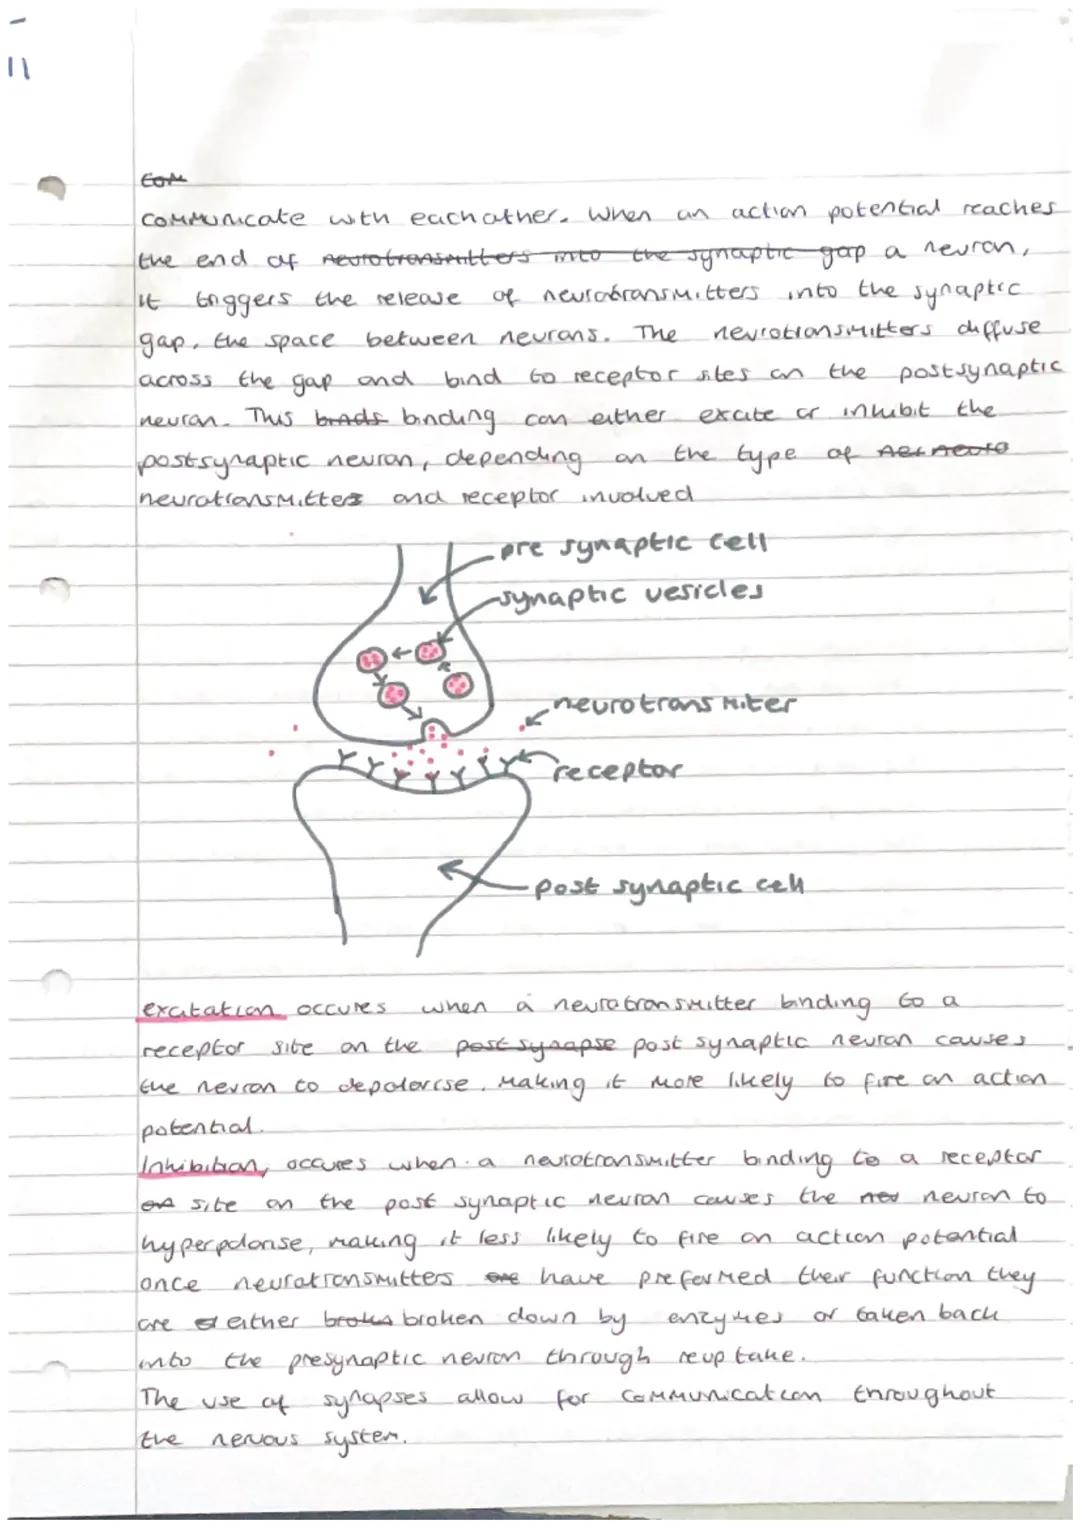 11
com
communicate with each other. When an action potential reaches
the end of neurotransmitters into the synaptic gap a neuron,
it triggers the release of neurotransmitters into the synaptic
gap, the space between neurons. The neurotransmitters diffuse
across the gap and bind to receptor sites on the postsynaptic
neuron. This binds binding can either excite or inhibit the
postsynaptic neuron, depending on the type of
neurotransmitters and receptor involved
pre synaptic cell
synaptic vesicles
neurotransmiter
receptor
post synaptic cell
excitation occures when a neurotransmitter binding to a
receptor site on the post synapse post synaptic neuron causes
the neuron to depolarise, making it more likely to fire an action
potential.
Inhibition, occures when a neurotransmitter binding to a receptor
on site on the post synaptic neuron causes the neu neuron to
hyperpolarise, making it less likely to fire an action potential
once neurotransmitters are have preformed their function they
are either broken down by enzymes or taken back
into the presynaptic neuron through reuptake.
The use of synapses allow for communication throughout
the nervous system.